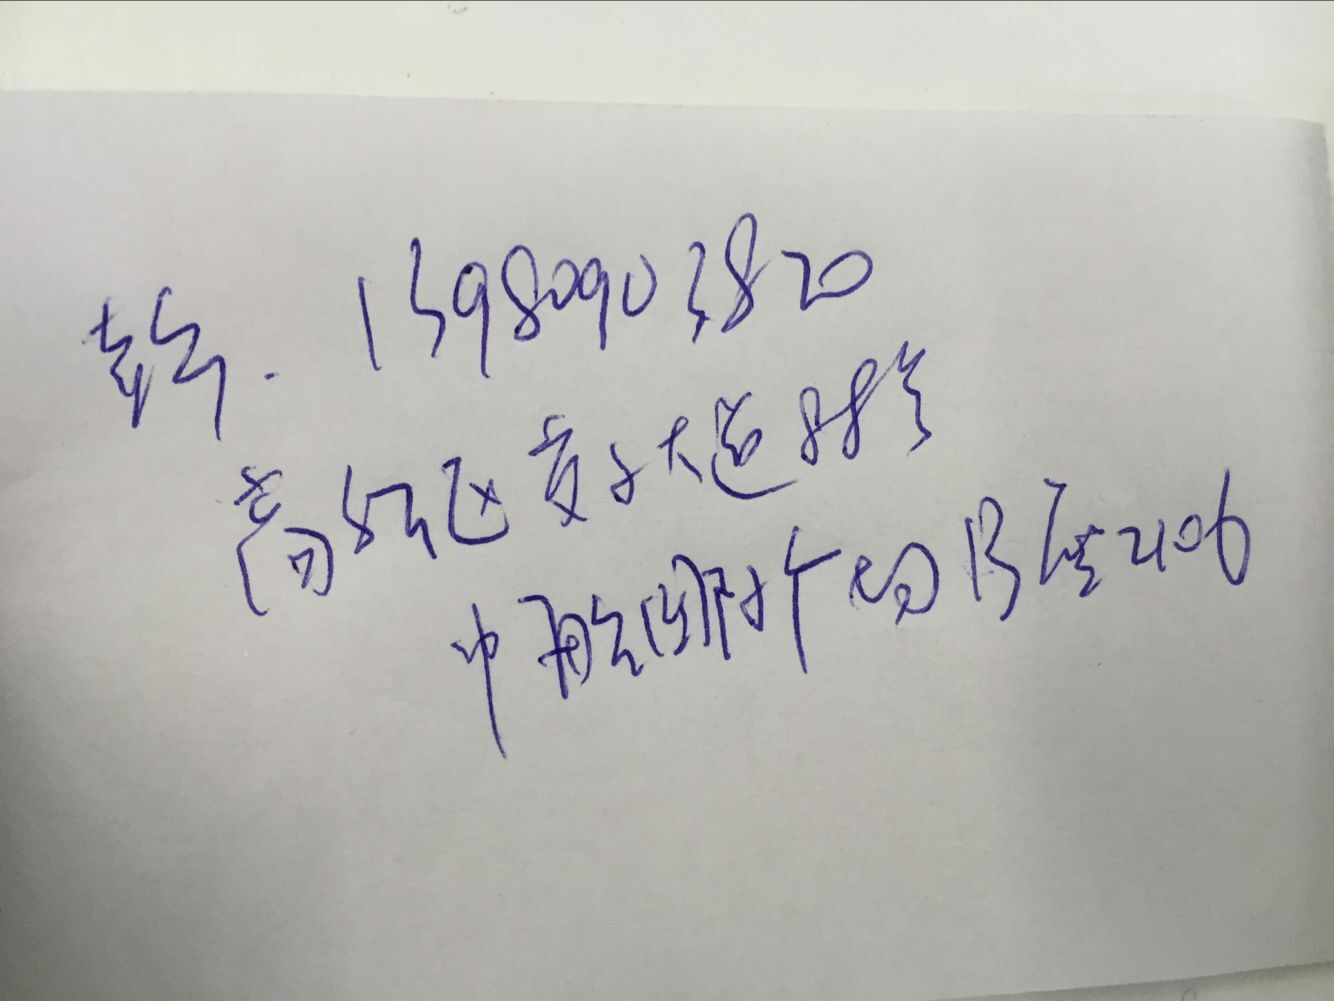 13980903820
高新区益州大道888号
中航国际广场B座2106